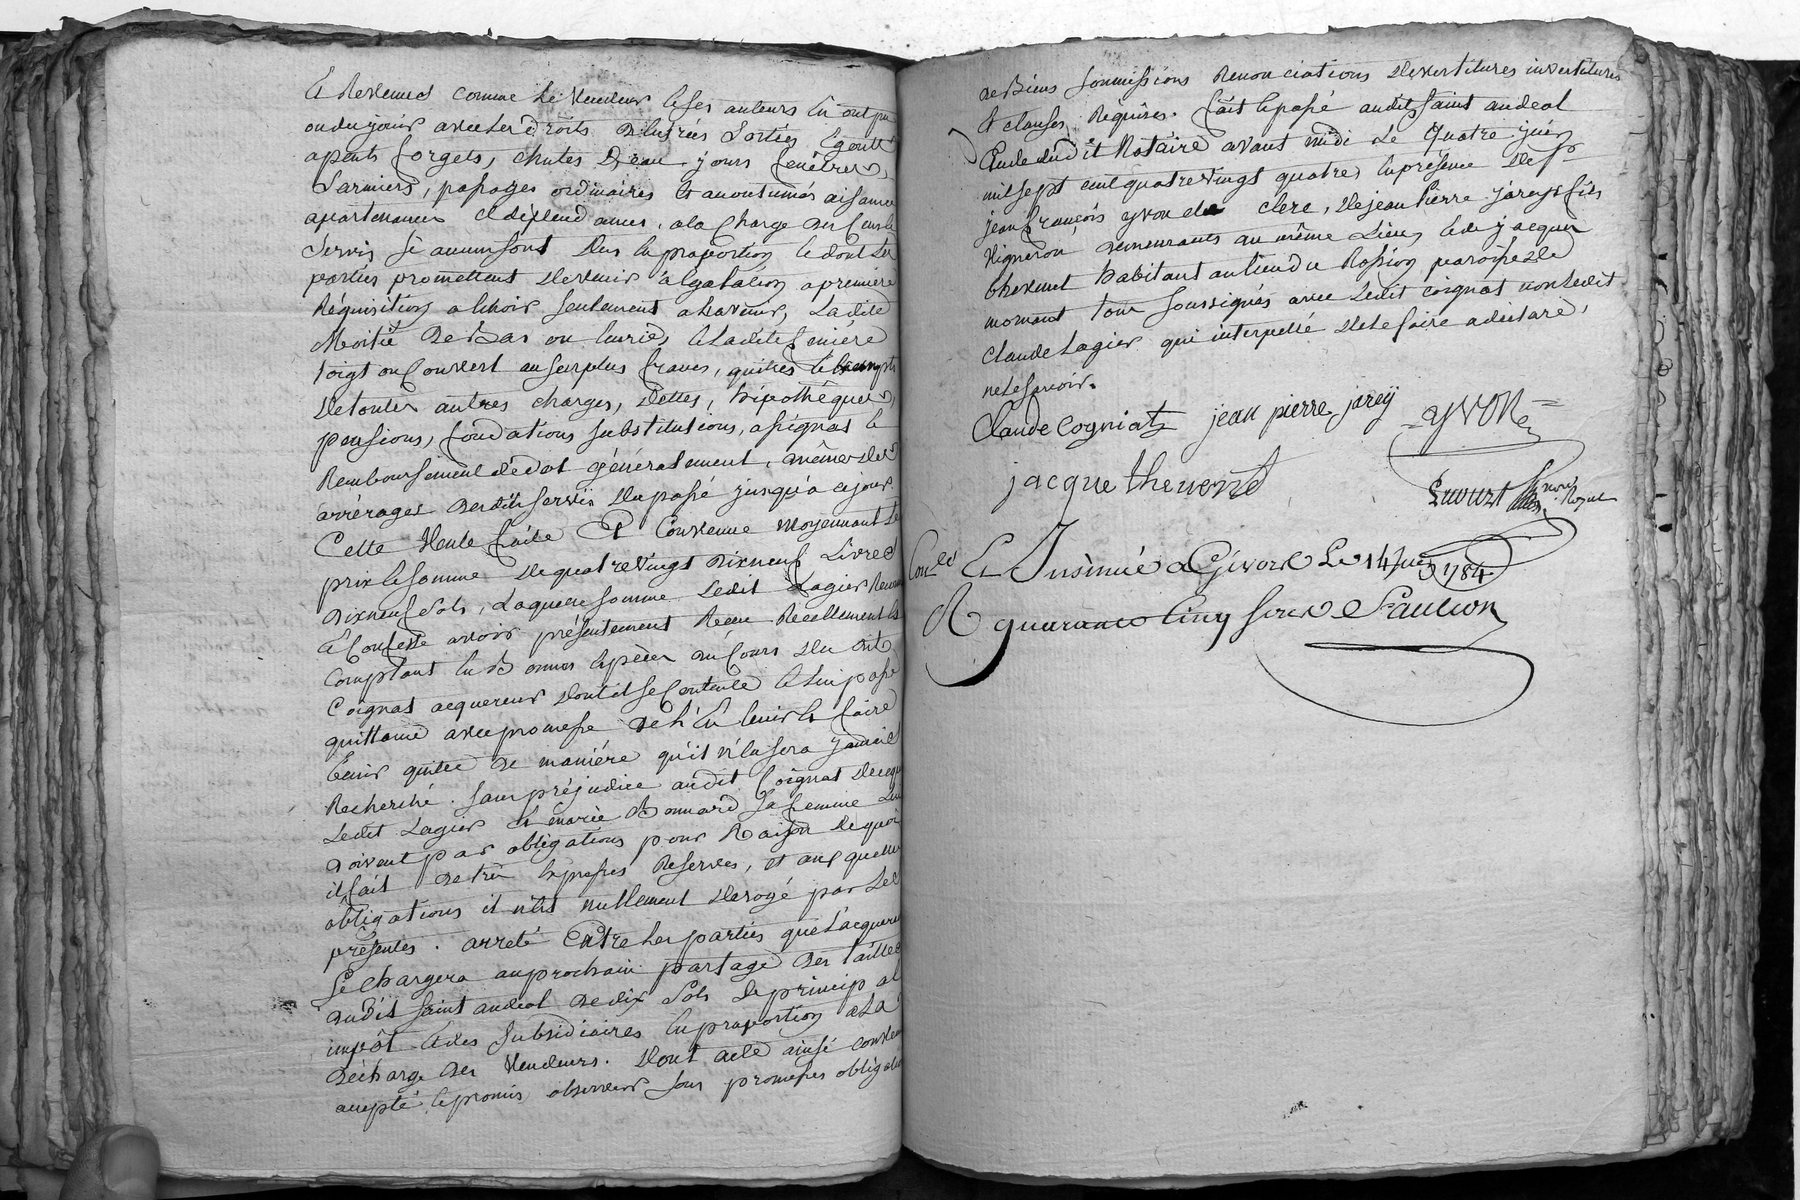 et Revenus comme le Vendeur et ses auteurs en ont pu
ou du jouir avec les droits d'entrées sorties, Egouts
apents forgets, chutes d'eau jours fenêtres,
Larmiers, passages ordinaires et accoutumés aisance
apartenances et dépend ances, a la charge des cens et
servis si aucuns sont dus en proportion et dont les
parties promettent de venir à légalation a premiere
Réquisition a échoir seulement a l'avenir, La dite
Moitié de bas ou curie, et la dite feniére
toigt ou couvert au surplus francs, quittes et exempts
de toutes autres charges, dettes, hipothéques,
pensions, fondations substitutions, assignat et
Remboursement de dot généralement, même des
arrérages desdits servis du passé jusqu'a ce jour
Cette Vente faite et Convenue moyennant le
prix et somme de quatrevingt dixneuf Livres
dixneuf sols, Laquelle somme ledit Lagier
et confesse avoir présentement Reçu Reéllement et
comptant en bonnes espèces du cours du dit
Coignat acquereur dont il se contente et l'en passe
quittance avec promesse de l'en tenir et faire
tenir quitte de maniére qu'il n'en sera jamais
Recherché. sans préjudice audit Coignat de ce que
ledit Lagier et marie Bonnard sa femme lui
doivent par obligations pour Raison de quoi
il fait de très expresses Reserves, et aux quelles
obligations il n'est nullement derogé par les
présentes. arreté entre les parties que l'acquereur
se chargera au prochain partage des tailles
dudit saint andeol de dix sols de princip al
impôt et des subsidiaires en proportion a la
décharge des Vendeurs. dont acte ainsi convenu
accepté et promis observer sous promesses obligation
de Biens soumissions Renon ciations devertitures invertitures
et clauses Requises. fait et passé audit saint andeol
Etude dudit Notaire avant midi le quatre juin
mil sept cent quatrevingt quatre, en présence de Sr
jean françois yvon clerc, de jean Pierre jarey fils
Vigneron demeurants au même Lieu, et de jacques
thevenet habitant au lieu du Rossion paroisse de
mornant tous soussignés avec ledit coignat non ledit
claude Lagier qui interpellé de le faire a déclaré,
ne le savoir.
Claude Cogniat jean pierre jarey yvon
jacque thevenet
Contlé Et Insinué a Givors Le 14 Juin 1784
R quarante cinq sous